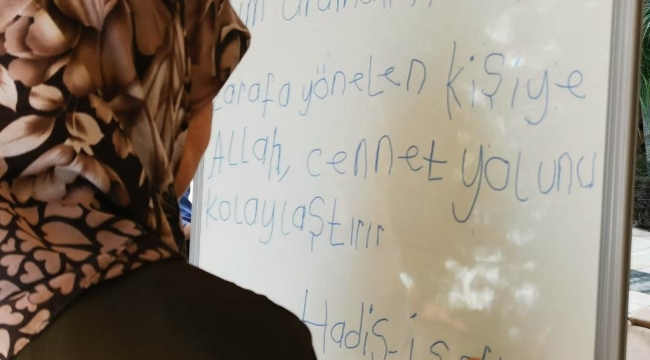 tarafa yönelen kişiye
Allah, cennet yolunu
kolaylaştırır
Hadis-i